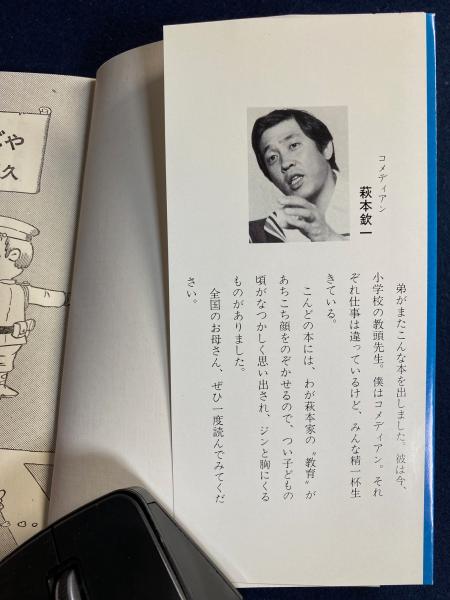 コメディアン
萩本欽一
弟がまたこんな本を出しました。彼は今、
小学校の教頭先生。僕はコメディアン。それ
ぞれ仕事は違っているけど、みんな精一杯生
きている。
こんどの本には、わが萩本家の〝教育〟が
あちこち顔をのぞかせるので、つい子どもの
頃がなつかしく思い出され、ジンと胸にくる
ものがありました。
全国のお母さん、ぜひ一度読んでみてくだ
さい。
や
久